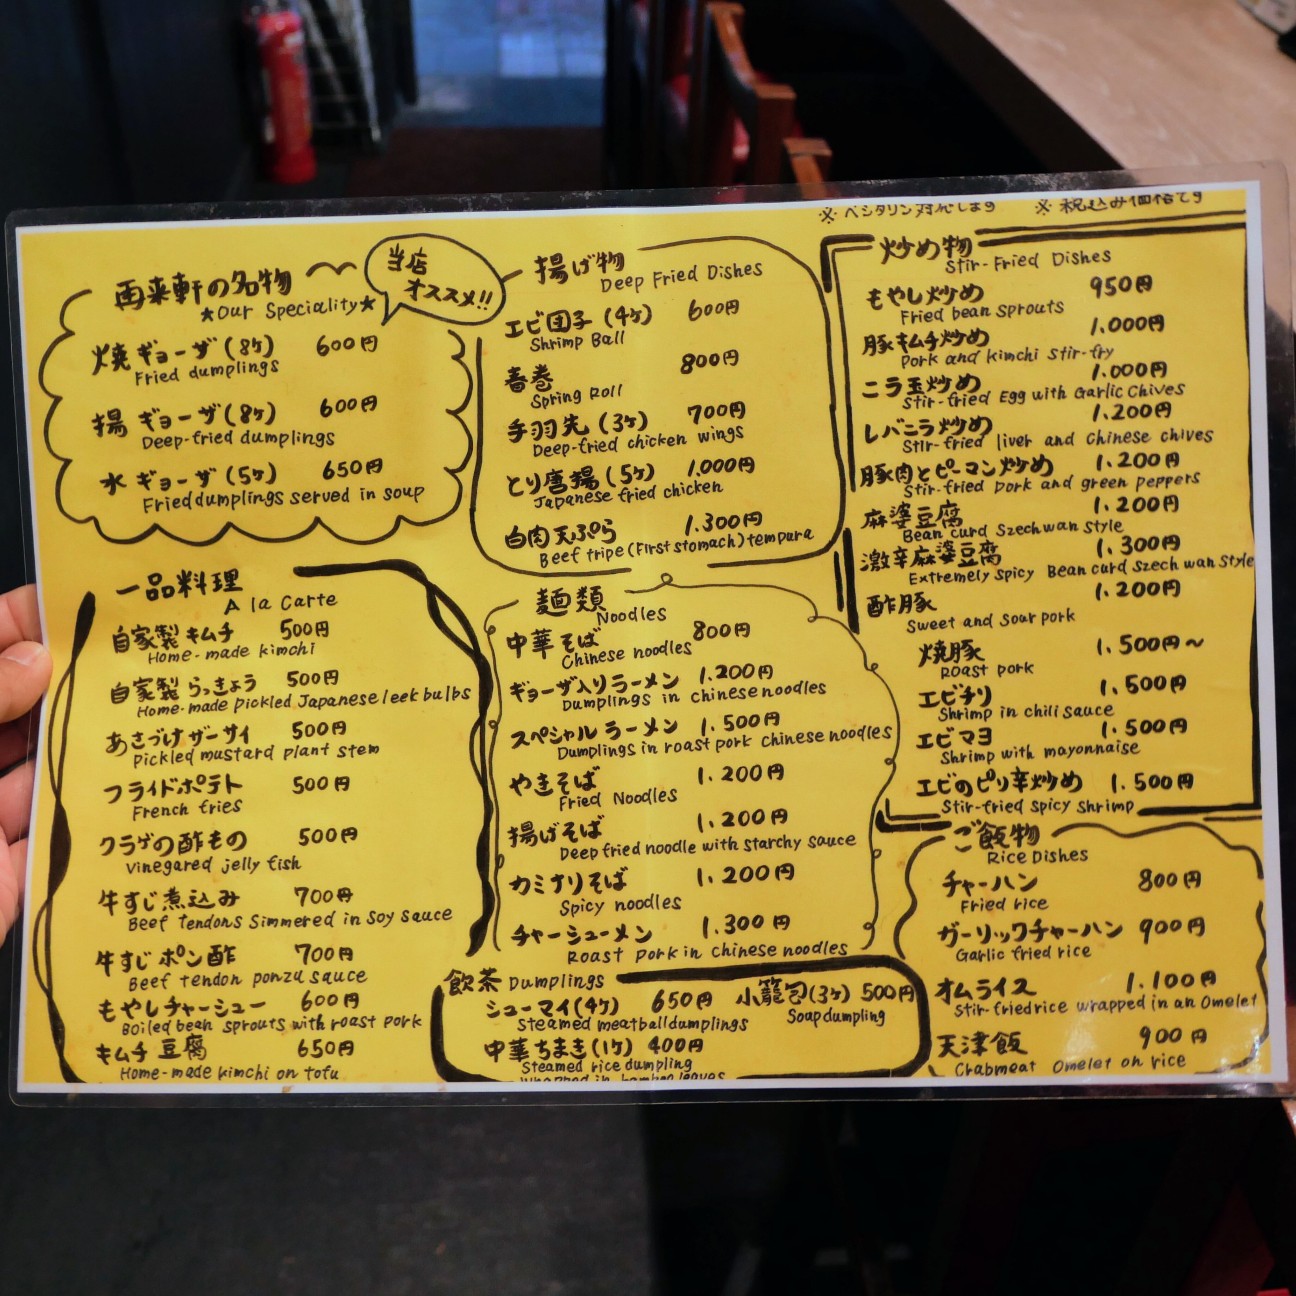 ※ ベジタリアン対応します ※ 税込み価格です
再来軒の名物
★Our Speciality★
当店
オススメ!!
焼ギョーザ(8ヶ) 600円
Fried dumplings
揚ギョーザ(8ヶ) 600円
Deep-fried dumplings
水ギョーザ(5ヶ) 650円
Fried dumplings served in soup
一品料理
A la Carte
自家製キムチ 500円
Home-made kimchi
自家製らっきょう 500円
Home-made pickled Japanese leek bulbs
あさづけザーサイ 500円
pickled mustard plant stem
フライドポテト 500円
French fries
クラゲの酢もの 500円
vinegared jelly fish
牛すじ煮込み 700円
Beef tendons simmered in soy sauce
牛すじポン酢 700円
Beef tendon ponzu sauce
もやしチャーシュー 600円
Boiled bean sprouts with roast pork
キムチ豆腐 650円
Home-made kimchi on tofu
揚げ物
Deep Fried Dishes
エビ団子(4ヶ) 600円
Shrimp Ball
春巻 800円
Spring Roll
手羽先(3ヶ) 700円
Deep-fried chicken wings
とり唐揚(5ヶ) 1.000円
Japanese fried chicken
白肉天ぷら 1.300円
Beef tripe (First stomach) tempura
麺類
Noodles
中華そば 800円
Chinese noodles
ギョーザ入りラーメン 1.200円
Dumplings in chinese noodles
スペシャルラーメン 1.500円
Dumplings in roast pork chinese noodles
やきそば 1.200円
Fried Noodles
揚げそば 1.200円
Deep fried noodle with starchy sauce
カミナリそば 1.200円
Spicy noodles
チャーシューメン 1.300円
Roast pork in chinese noodles
飲茶 Dumplings
シューマイ(4ヶ) 650円
Steamed meatball dumplings
小籠包(3ヶ) 500円
Soap dumpling
中華ちまき(1ヶ) 400円
Steamed rice dumpling
wrapped in bamboo leaves
炒め物
Stir-Fried Dishes
もやし炒め 950円
Fried bean sprouts
豚キムチ炒め 1.000円
Pork and kimchi stir-fry
ニラ玉炒め 1.000円
Stir-fried Egg with Garlic Chives
レバニラ炒め 1.200円
Stir-fried liver and chinese chives
豚肉とピーマン炒め 1.200円
Stir-fried pork and green peppers
麻婆豆腐 1.200円
Bean curd Szechwan style
激辛麻婆豆腐 1.300円
Extremely spicy Bean curd Szechwan style
酢豚 1.200円
Sweet and sour pork
焼豚 1.500円～
Roast pork
エビチリ 1.500円
Shrimp in chili sauce
エビマヨ 1.500円
Shrimp with mayonnaise
エビのピリ辛炒め 1.500円
Stir-fried spicy shrimp
ご飯物
Rice Dishes
チャーハン 800円
Fried rice
ガーリックチャーハン 900円
Garlic fried rice
オムライス 1.100円
Stir-fried rice wrapped in an Omelet
天津飯 900円
Crabmeat Omelet on rice